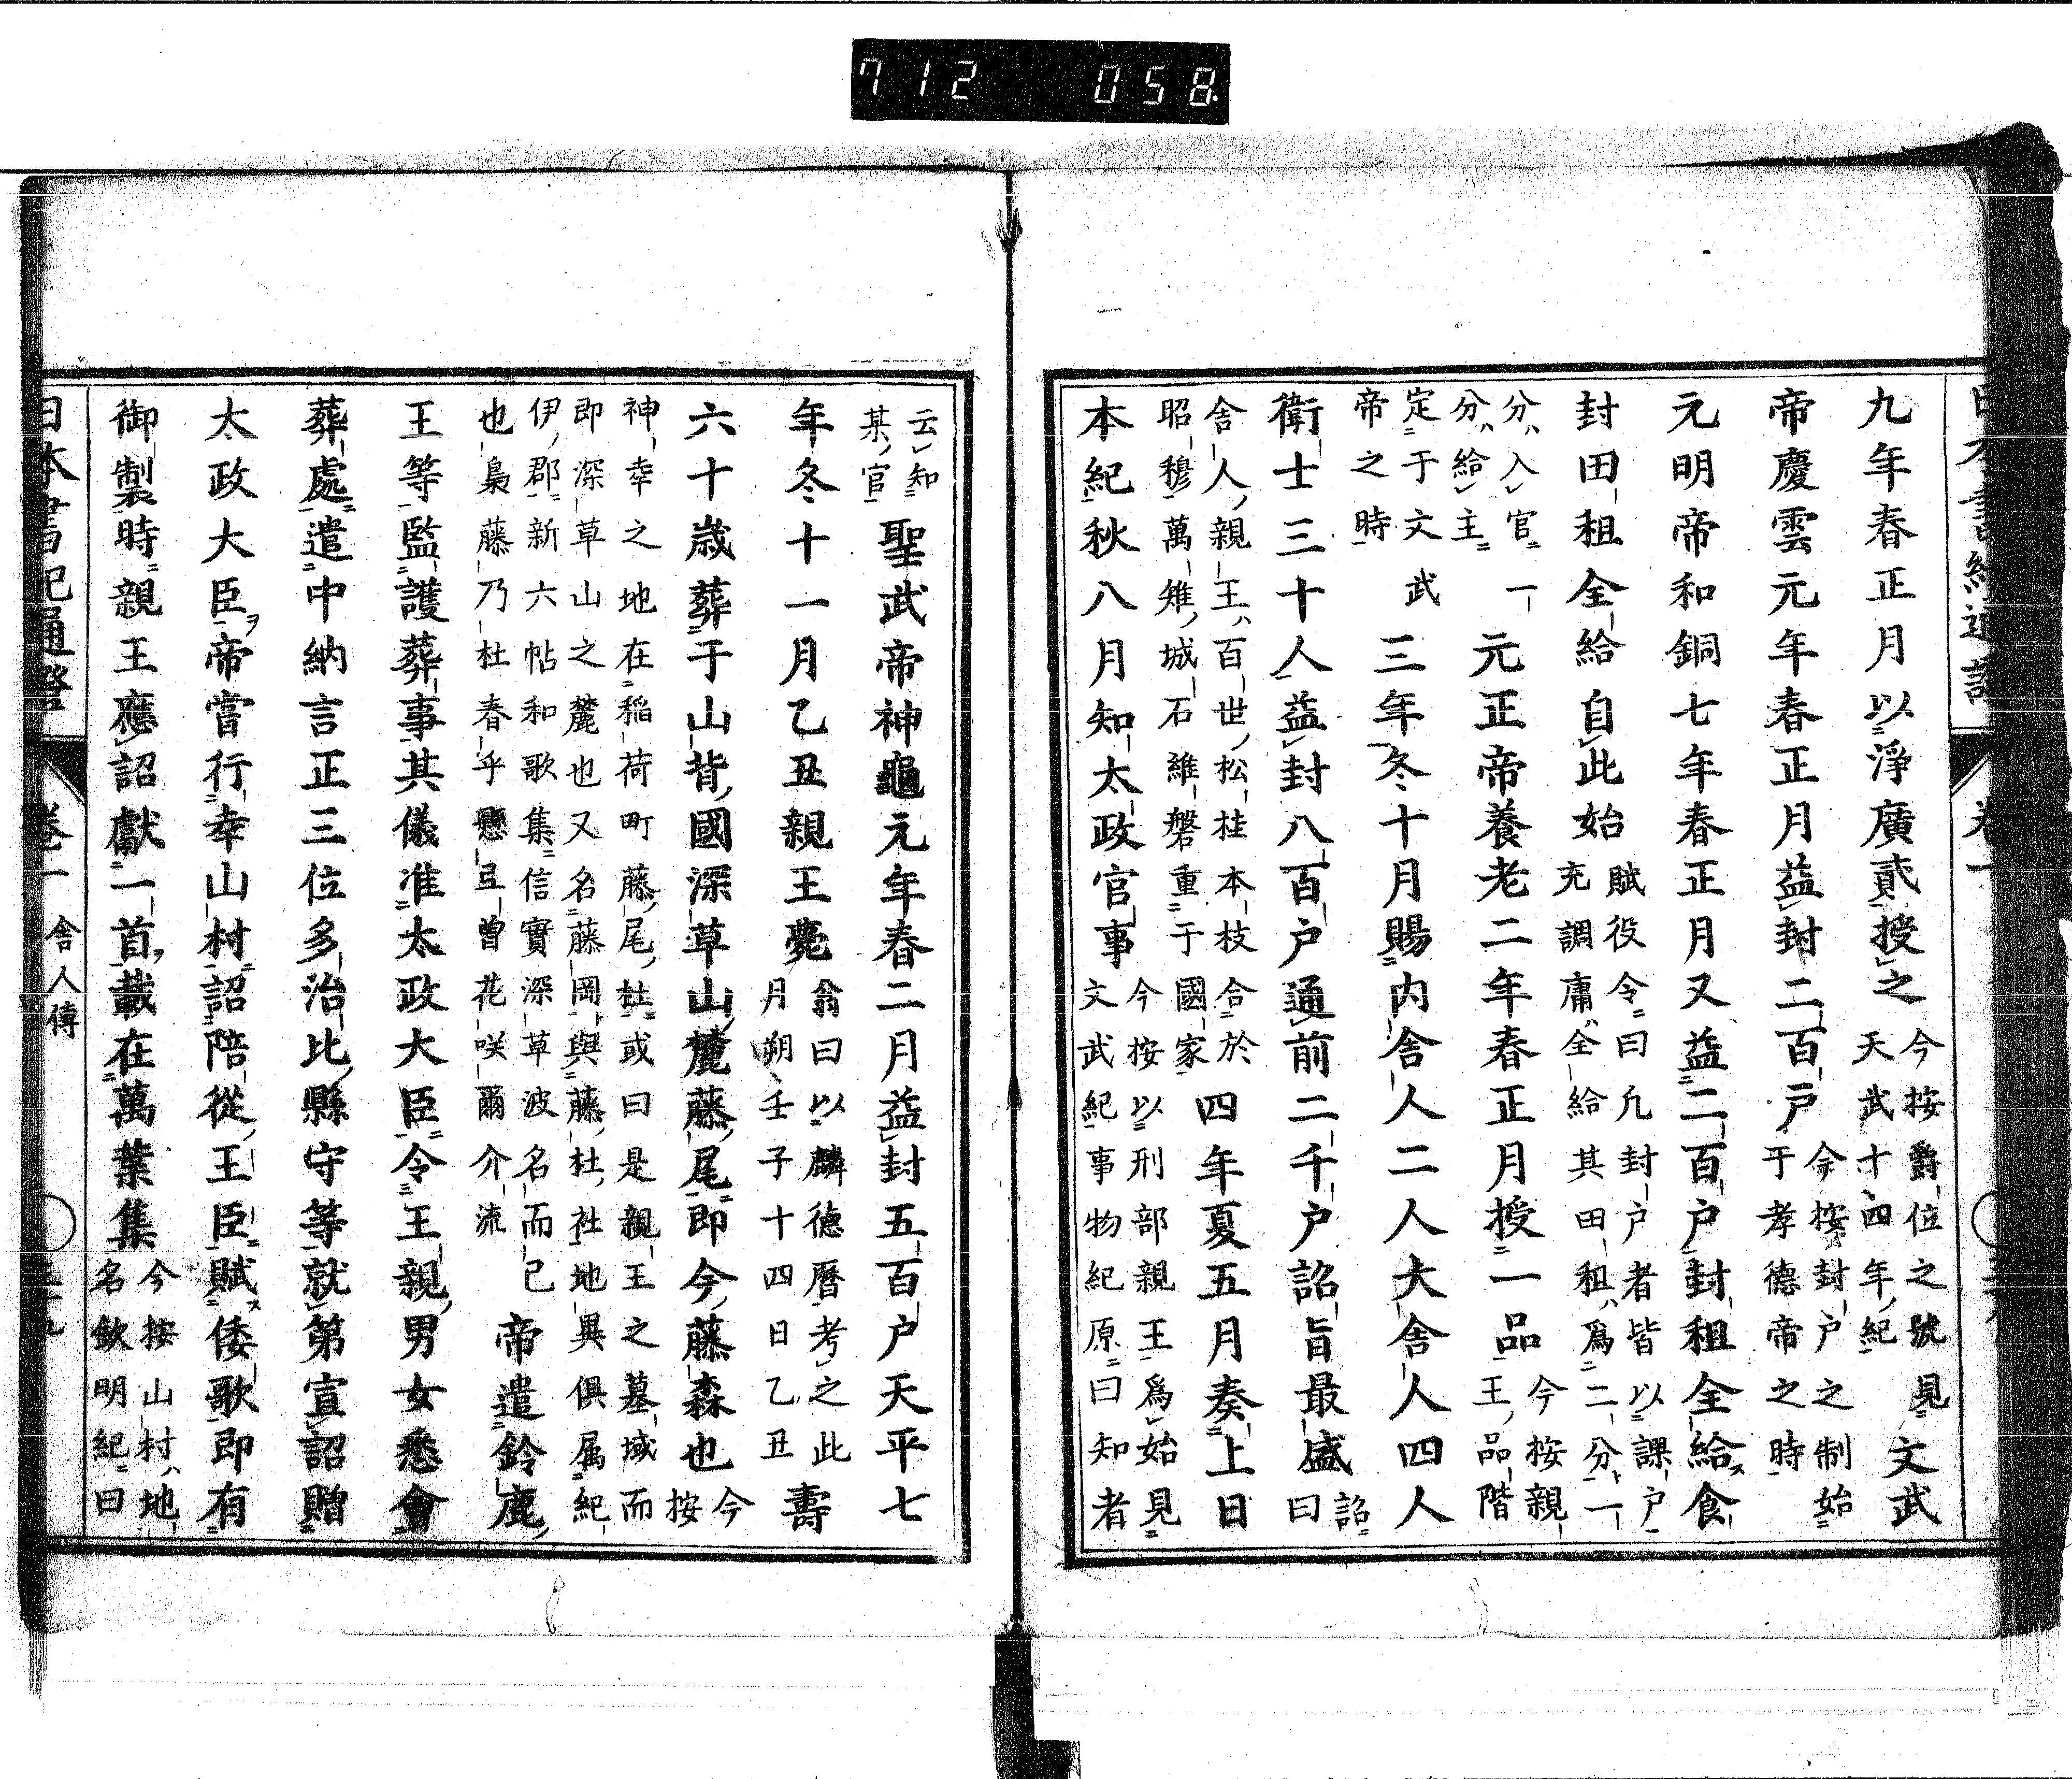 712 058
九年春正月以淨廣貳授之 今按爵位之號見
天武十四年紀 文武
帝慶雲元年春正月益封二百戸 今按封戸之制始
于孝德帝之時
元明帝和銅七年春正月又益二百戸封租全給食
封田租全給自此始 賦役令曰凡封戸者皆以課戸
充調庸全給其田租爲二分一
分入官一
分給主 元正帝養老二年春正月授一品 今按親
王品階
定于文武
帝之時 三年冬十月賜内舍人二人大舍人四人
衛士三十人益封八百戸通前二千戸詔旨最盛 詔
曰
舍人親王百世松桂本枝合於
昭穆萬雉城石維磐重于國家 四年夏五月奏上日
本紀秋八月知太政官事 今按以刑部親王爲始見
文武紀事物紀原曰知者
云知
某官 聖武帝神龜元年春二月益封五百戸天平七
年冬十一月乙丑親王薨 翁曰以麟德曆考之此
月朔壬子十四日乙丑 壽
六十歲葬于山背國深草山麓藤尾即今藤森也 今
按
神幸之地在稲荷町藤尾社或曰是親王之墓域而
即深草山之麓也又名藤岡與藤杜社地異俱属紀
伊郡新六帖和歌集信實深草波名而已
也梟藤乃杜春乎懸亘曽花咲爾介流 帝遣鈴鹿
王等監護葬事其儀准太政大臣令王親男女悉會
葬處遣中納言正三位多治比縣守等就第宣詔贈
太政大臣帝甞行幸山村詔陪從王臣賦倭歌即有
御製時親王應詔獻一首載在萬葉集 今按山村地
名欽明紀曰
日本書紀通證 卷一 舎人傳